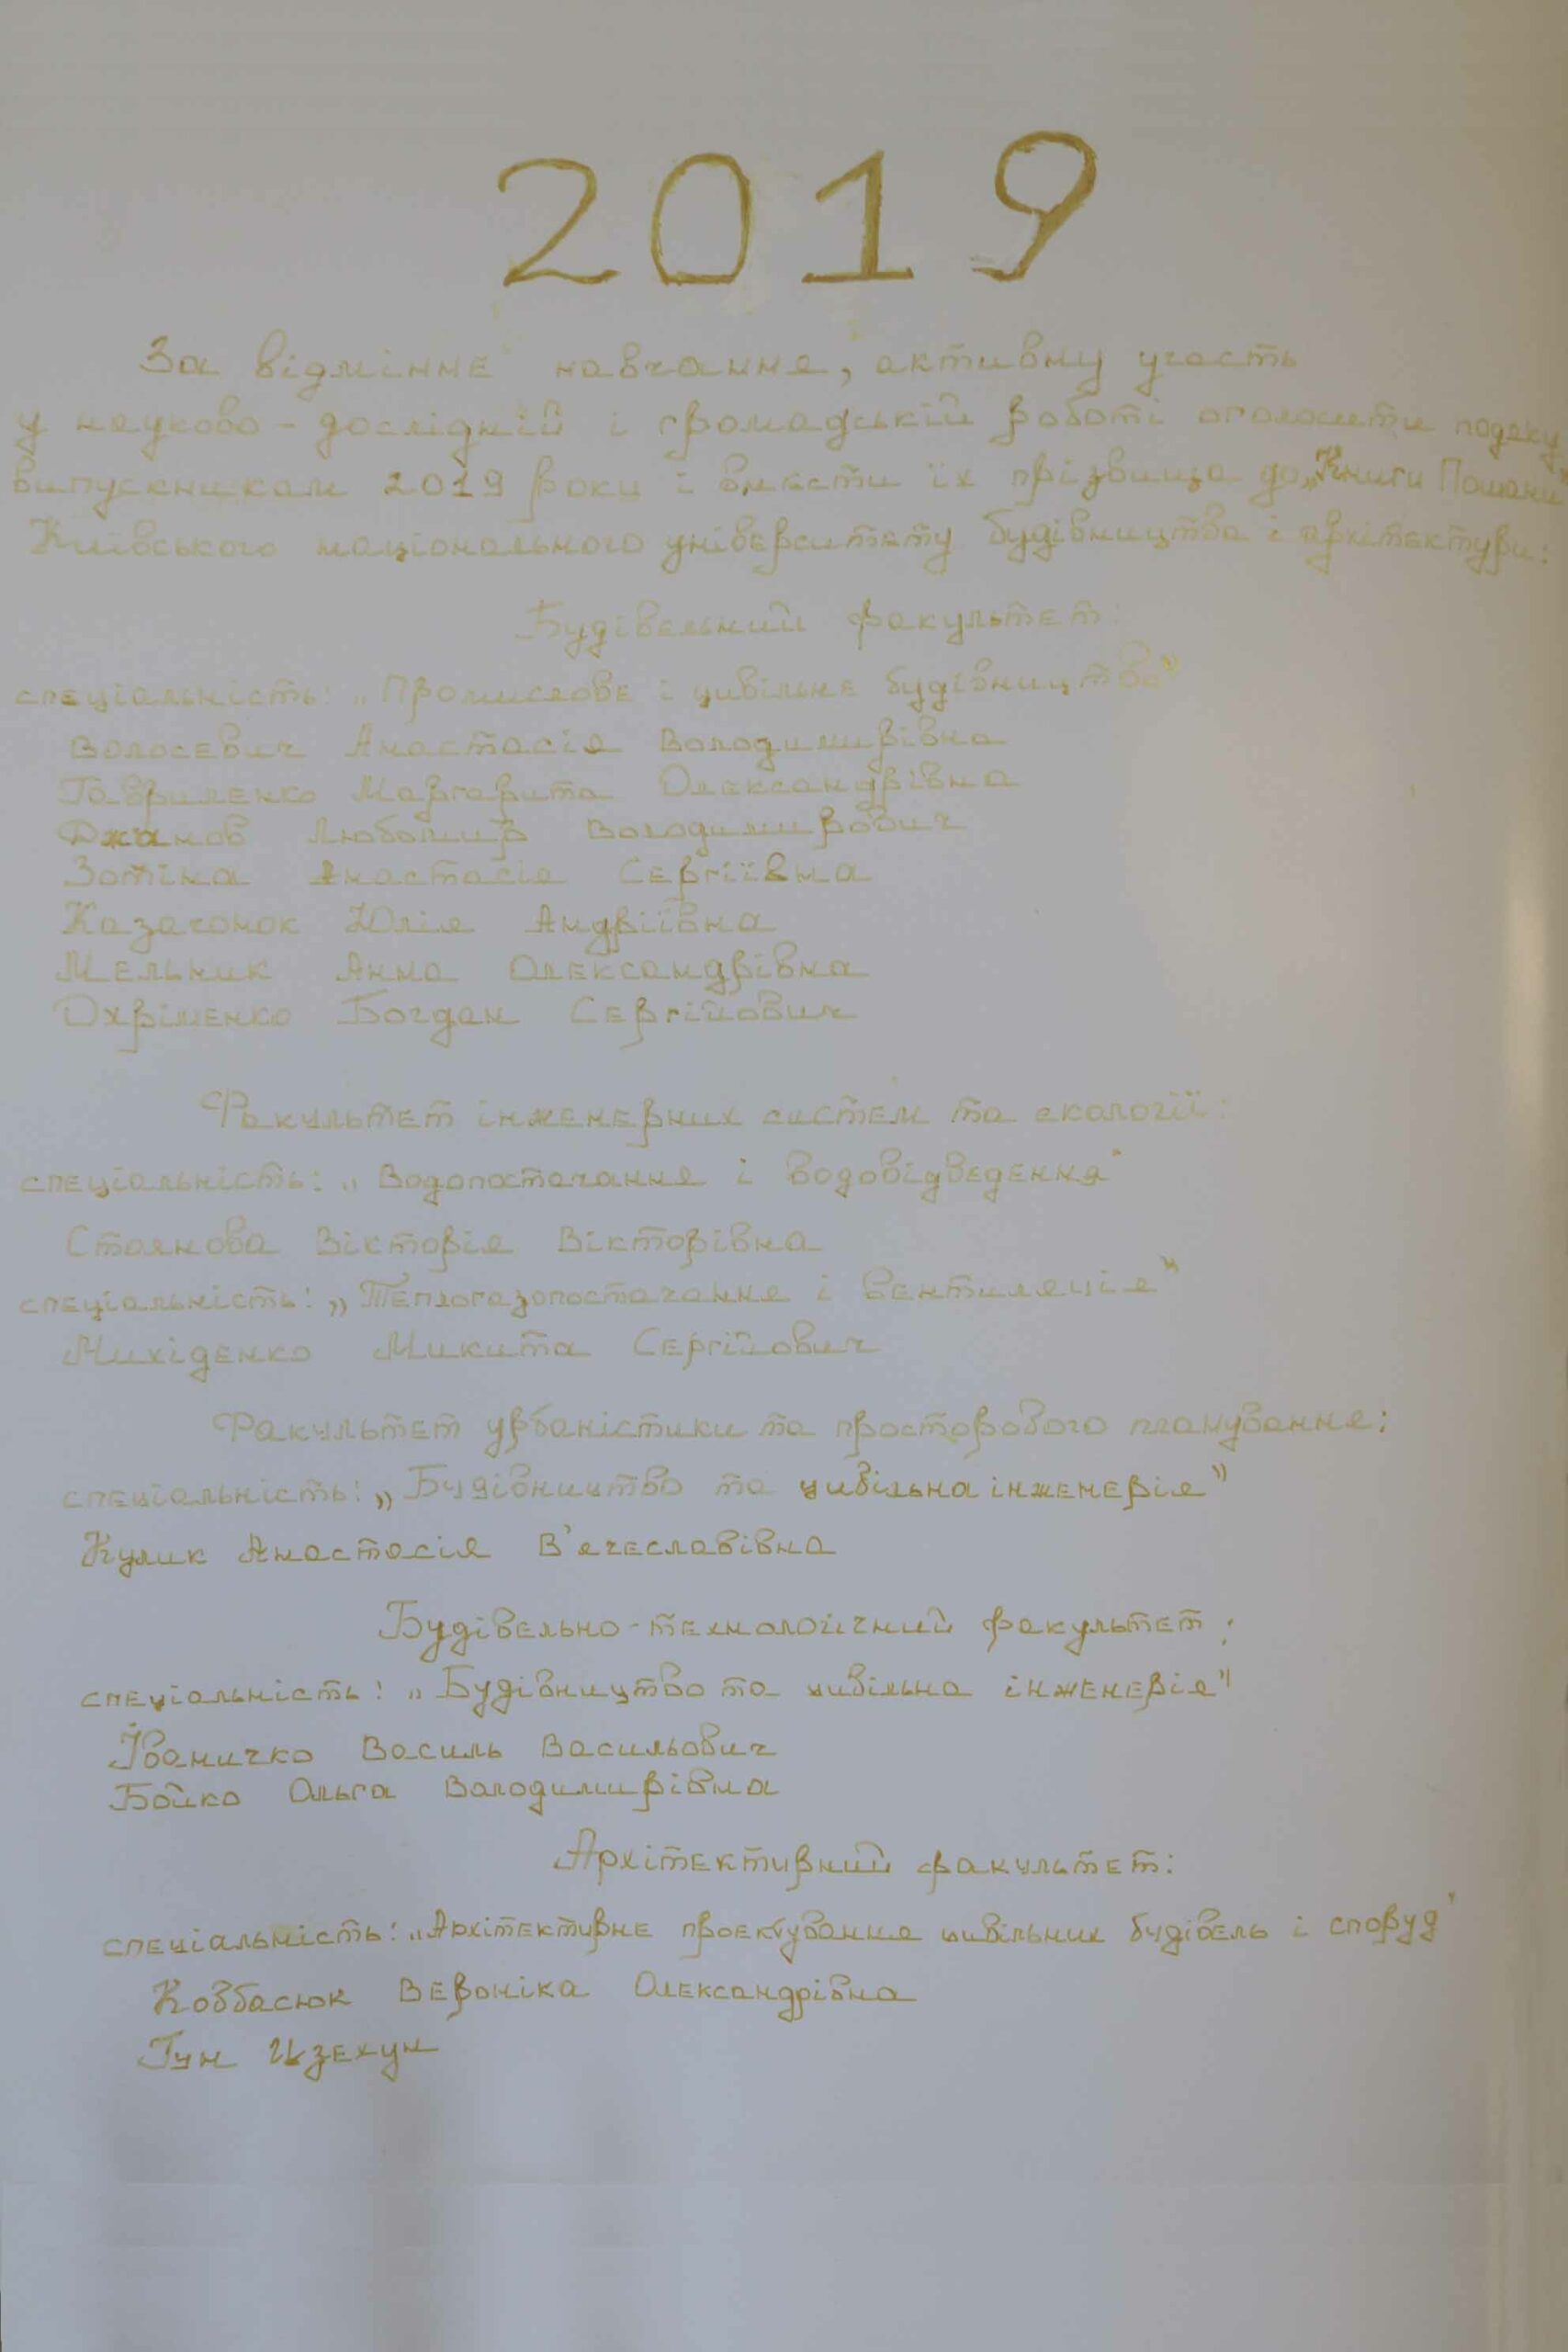 2019
За відмінне навчання, активну участь
у науково-дослідній і громадській роботі оголосити подяку
випускникам 2019 року і внести їх прізвища до „Книги Пошани"
Київського національного університету будівництва і архітектури:
Будівельний факультет:
спеціальність: „Промислове і цивільне будівництво"
Волосевич Анастасія Володимирівна
Гавриленко Маргарита Олександрівна
Джанов Любомир Володимирович
Зотіна Анастасія Сергіївна
Казачонок Юлія Андріївна
Мельник Анна Олександрівна
Охріменко Богдан Сергійович
Факультет інженерних систем та екології:
спеціальність: „Водопостачання і водовідведення"
Стоянова Вікторія Вікторівна
спеціальність: „Теплогазопостачання і вентиляція"
Михіденко Микита Сергійович
Факультет урбаністики та просторового планування:
спеціальність: „Будівництво та цивільна інженерія"
Кулик Анастасія В'ячеславівна
Будівельно-технологічний факультет:
спеціальність: „Будівництво та цивільна інженерія"
Іваничко Василь Васильович
Бойко Ольга Володимирівна
Архітектурний факультет:
спеціальність: „Архітектурне проектування цивільних будівель і споруд"
Ковбасюк Вероніка Олександрівна
Гун Цзехун